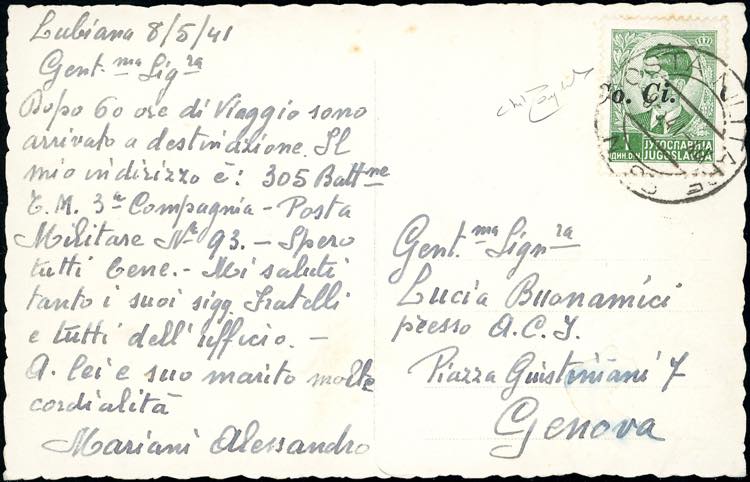 Lubiana 8/5/41
Gent.ma Sig.ra
Dopo 60 ore di viaggio sono
arrivato a destinazione. Il
mio indirizzo è: 305 Batt.ne
T.M. 3a Compagnia - Posta
Militare No 93. - Spero
tutti bene. - Mi saluti
tanto i suoi sigg. Fratelli
e tutti dell'ufficio. -
A lei e suo marito molte
cordialità
Mariani Alessandro
POSTA MILITARE
Co. Ci.
ЈУГОСЛАВИЈА
JUGOSLAVIJA
Gent.ma Sign.ra
Lucia Buonamici
presso A.C.I.
Piazza Giustiniani 7
Genova